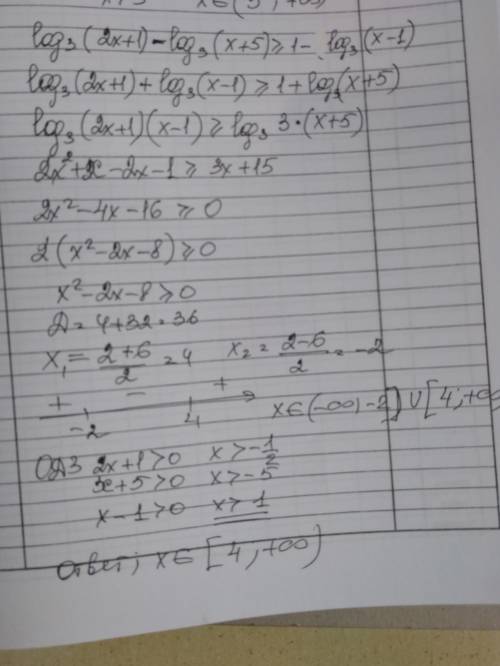 x∈(5; +∞)
log₃(2x+1) - log₃(x+5) ≥ 1 - log₃(x-1)
log₃(2x+1) + log₃(x-1) ≥ 1 + log₃(x+5)
log₃(2x+1)(x-1) ≥ log₃ 3·(x+5)
2x²+x-2x-1 ≥ 3x+15
2x²-4x-16 ≥ 0
2(x²-2x-8) ≥ 0
x²-2x-8 ≥ 0
Д = 4+32 = 36
x₁ = (2+6)/2 = 4 x₂ = (2-6)/2 = -2
+ - +
-2 4 x∈(-∞; -2] ∪ [4; +∞
ОДЗ 2x+1>0 x>-1/2
x+5>0 x>-5
x-1>0 x>1
Ответ; x∈[4; +∞)